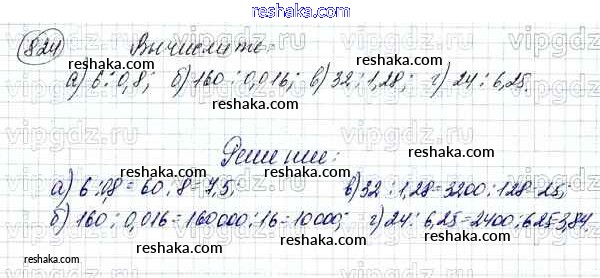 reshaka.com
824 Вычислить:
reshaka.com reshaka.com reshaka.com
а) 6 : 0,8; б) 160 : 0,016; в) 32 : 1,28; г) 24 : 6,25.
reshaka.com
Решение:
reshaka.com reshaka.com
а) 6 : 0,8 = 60 : 8 = 7,5; в) 32 : 1,28 = 3200 : 128 = 25;
reshaka.com
б) 160 : 0,016 = 160000 : 16 = 10000; г) 24 : 6,25 = 2400 : 625 = 3,84.
reshaka.com reshaka.com
reshaka.com